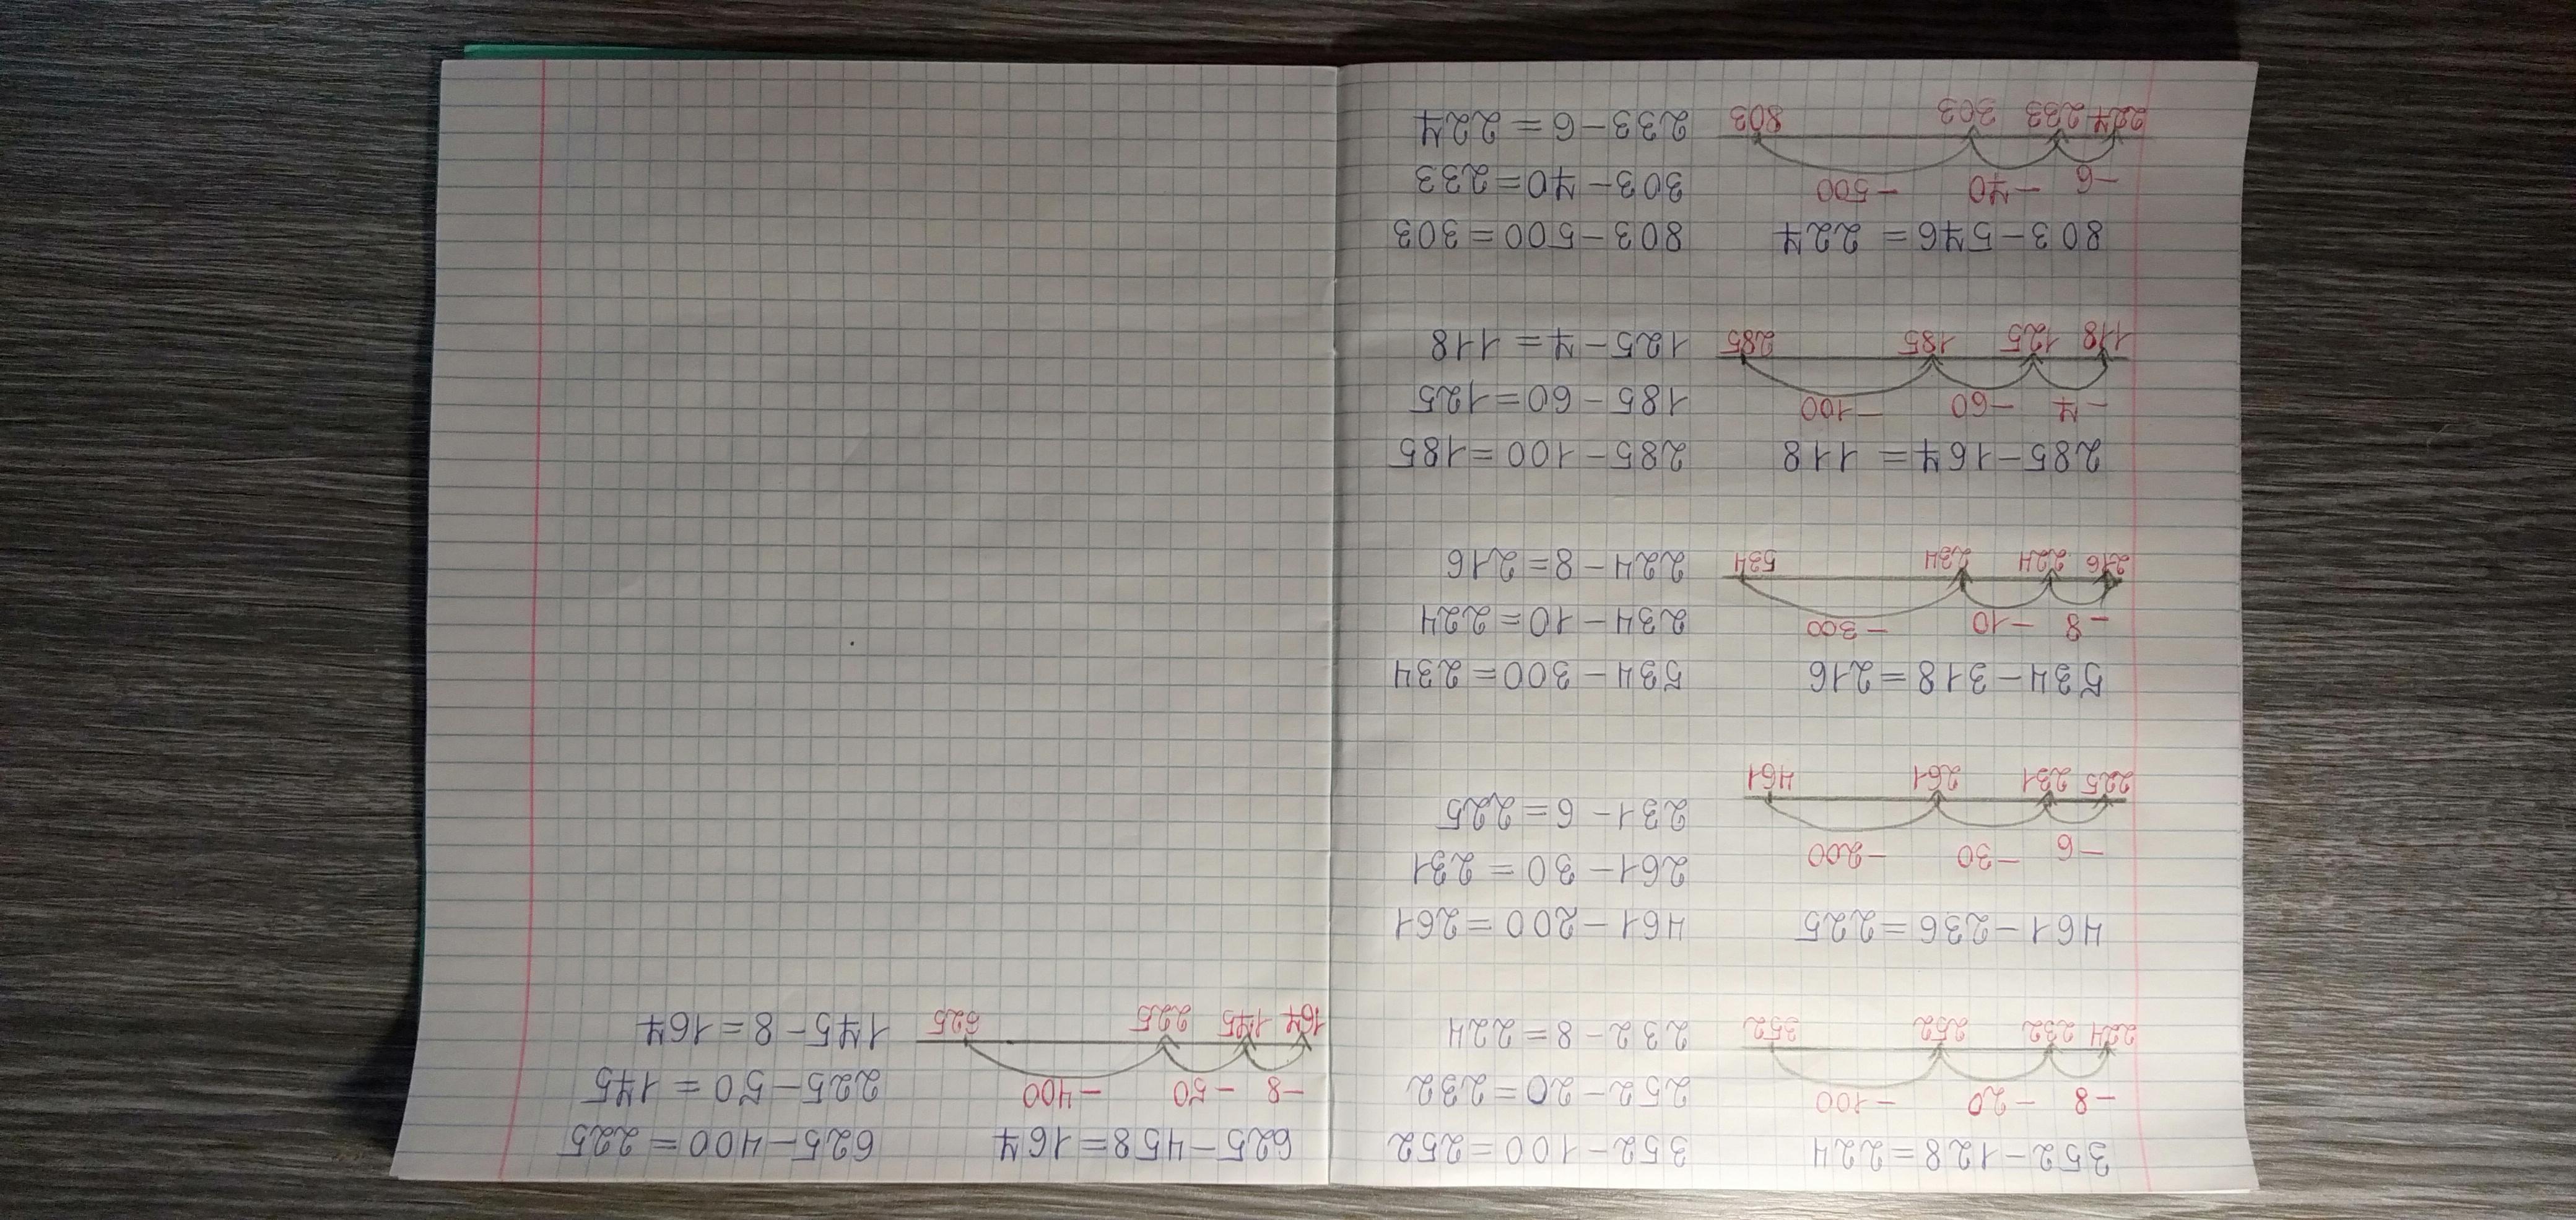 352-128=224 352-100=252
-8 -20 -100 252-20=232
224 232 252 352 232-8=224
461-236=225 461-200=261
-6 -30 -200 261-30=231
225 231 261 461 231-6=225
534-318=216 534-300=234
-8 -10 -300 234-10=224
216 224 234 534 224-8=216
285-167=118 285-100=185
-7 -60 -100 185-60=125
118 125 185 285 125-7=118
803-576=227 803-500=303
-6 -70 -500 303-70=233
227 233 303 803 233-6=227
625-458=167 625-400=225
-8 -50 -400 225-50=175
167 175 225 625 175-8=167